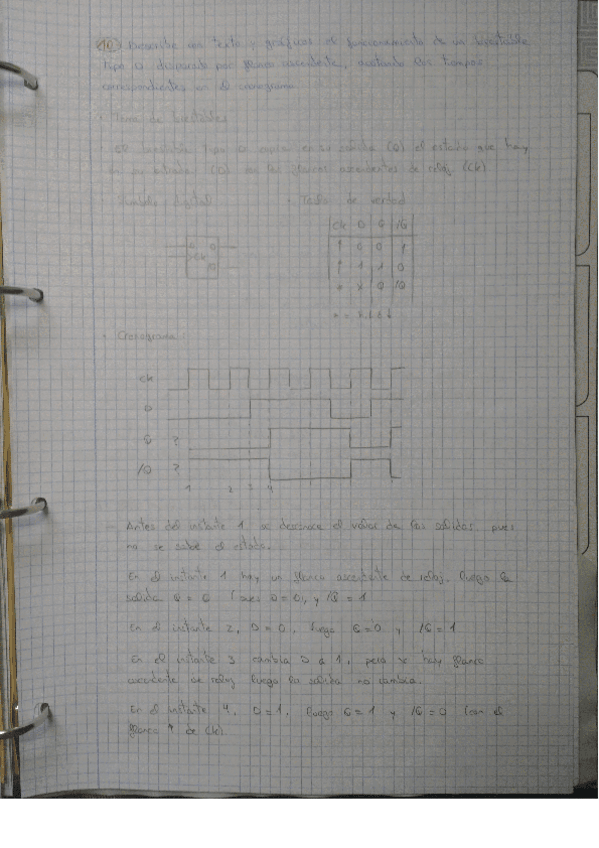 10 Describe con texto y gráficos el funcionamiento de un biestable
tipo D disparado por flanco ascendente, anotando los tiempos
correspondientes en el cronograma
· Tema de biestables
El biestable tipo D copia en su salida (Q) el estado que hay
en su entrada (D) con los flancos ascendentes de reloj (Ck)
· Símbolo digital · Tabla de verdad
Ck D Q /Q
↑ 0 0 1
↑ 1 1 0
x Q /Q
· Cronograma:
Ck
D
Q ?
/Q ?
1 2 3 4
Antes del instante 1 se desconoce el valor de las salidas, pues
no se sabe el estado.
En el instante 1 hay un flanco ascendente de reloj, luego la
salida Q = 0 (pues D = 0), y /Q = 1
En el instante 2, D = 0, luego Q = 0 y /Q = 1
En el instante 3 cambia D a 1, pero hay flanco
ascendente de reloj luego la salida no cambia.
En el instante 4, D = 1, luego Q = 1 y /Q = 0 (con el
flanco ↑ de Ck)